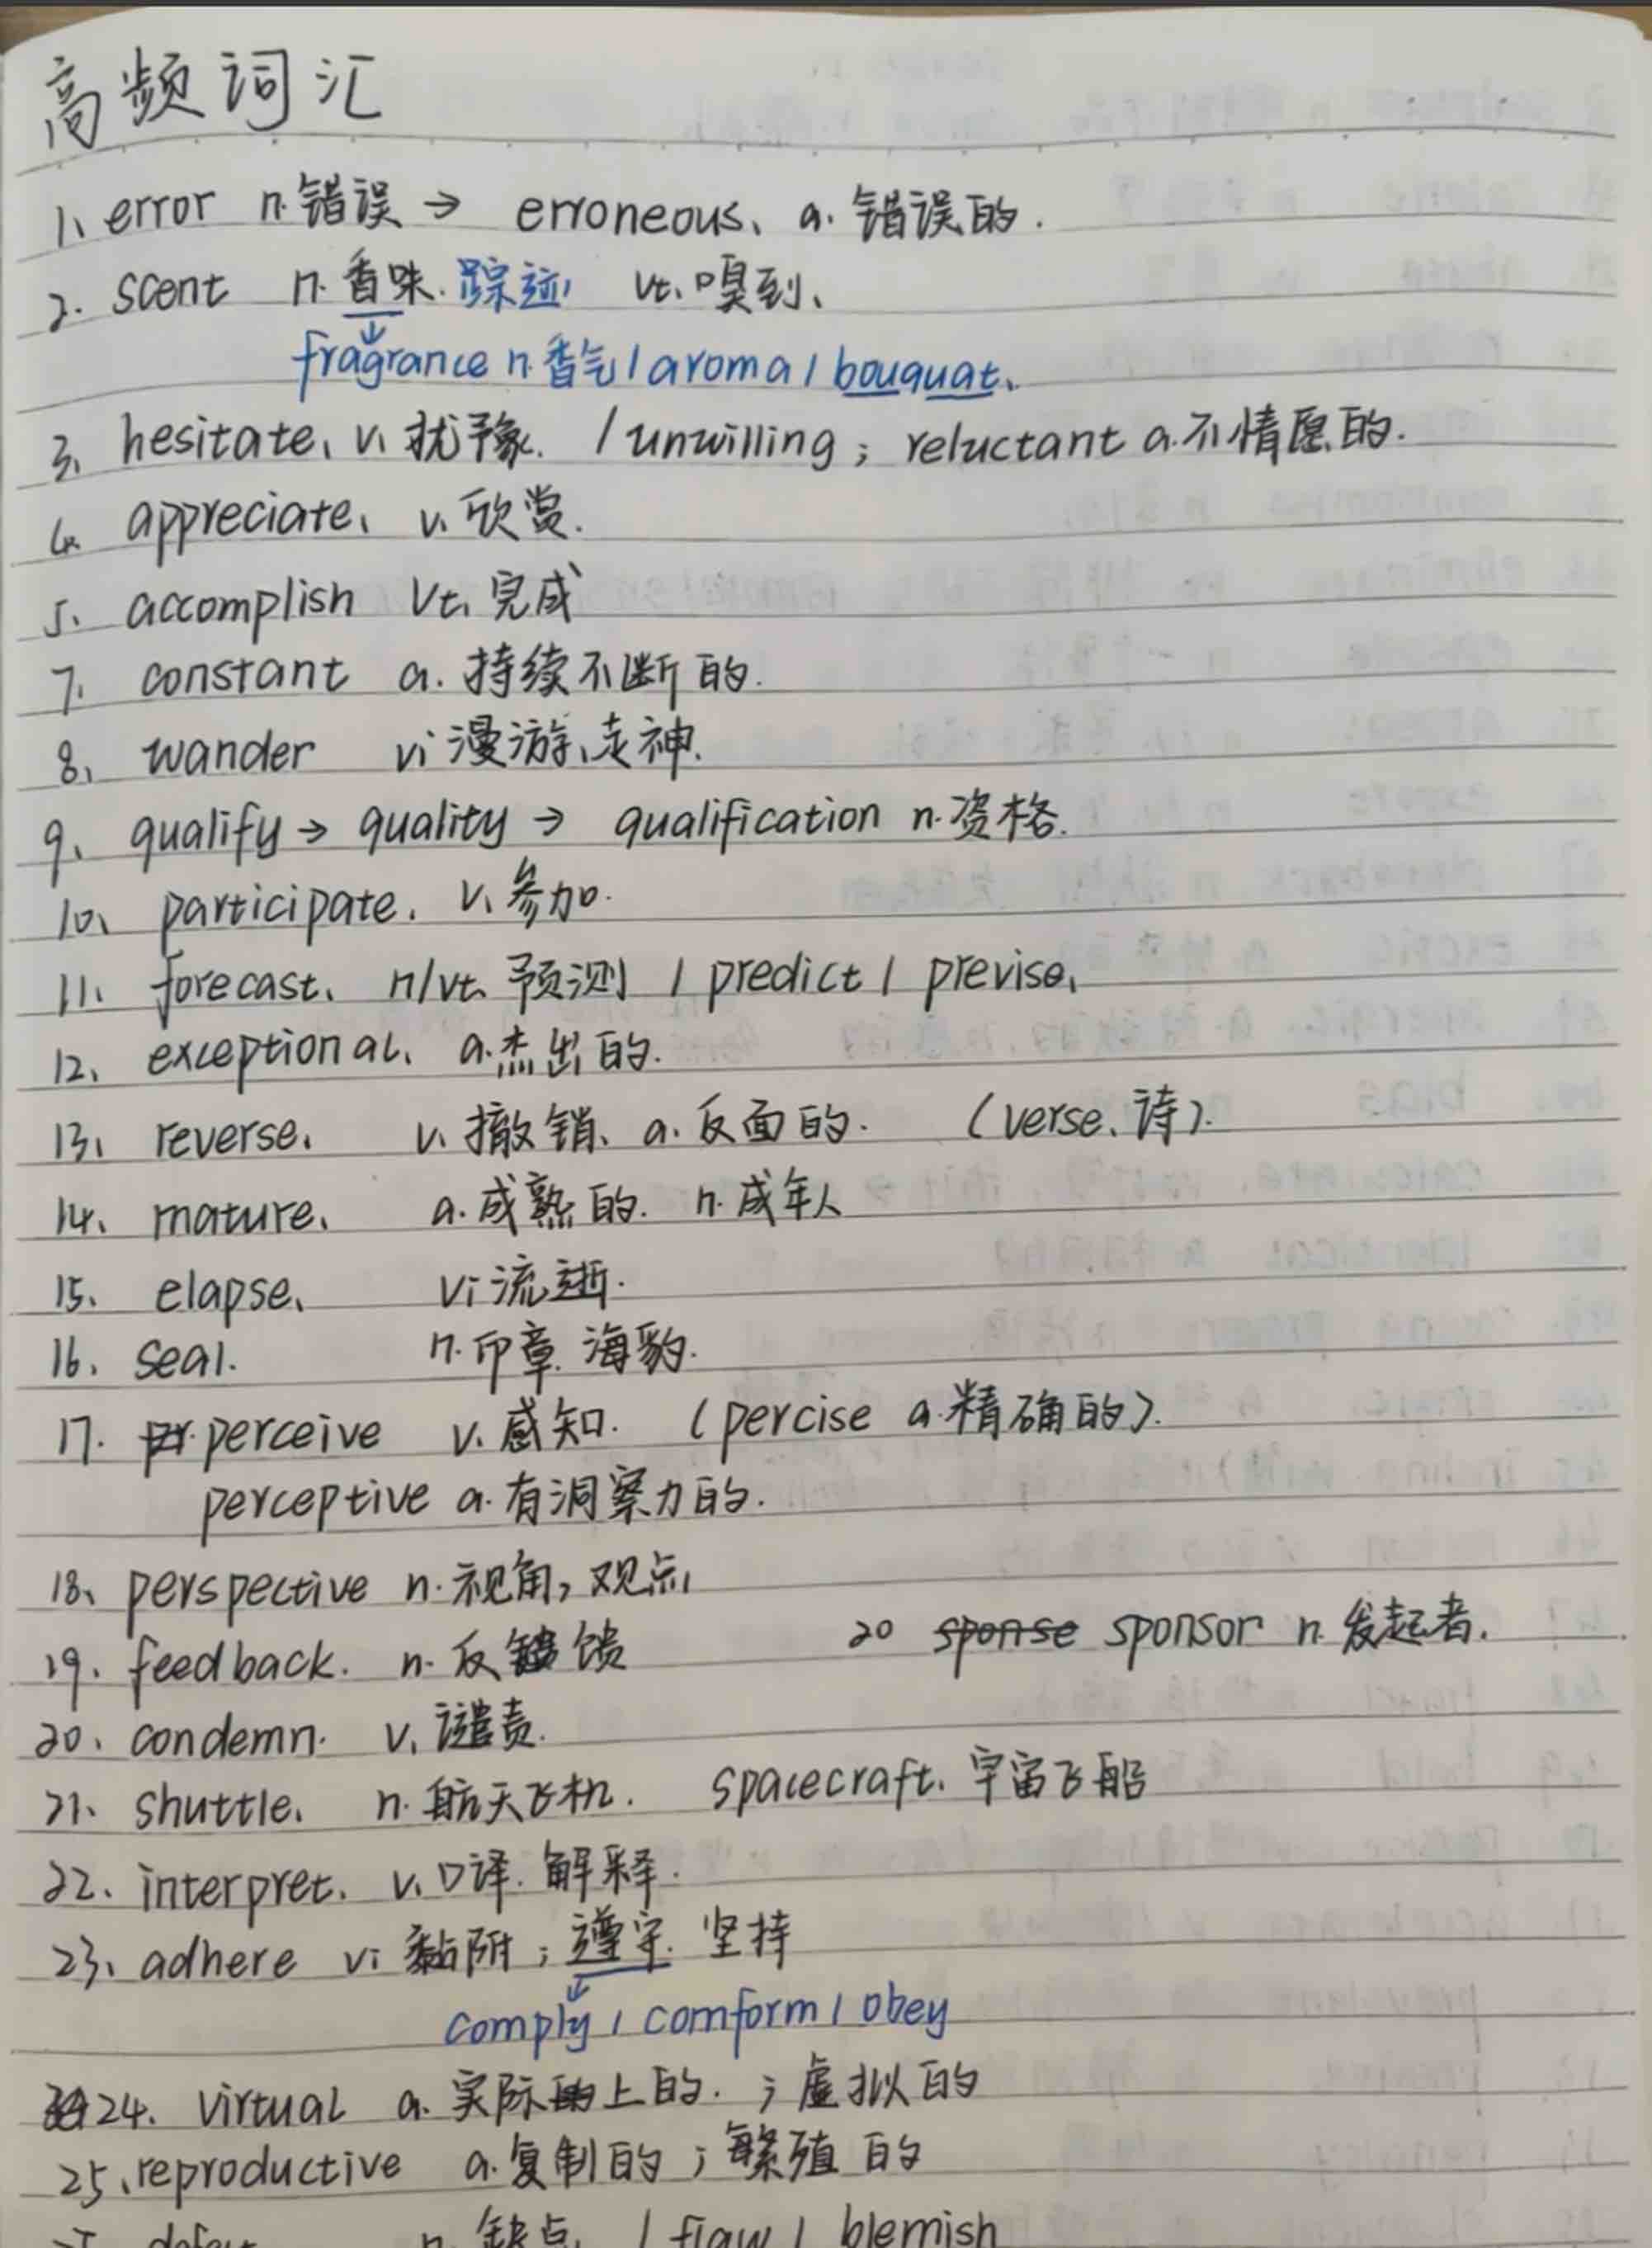 高频词汇
1、error n.错误 → erroneous、a.错误的.
2. scent n.香味.踪迹, vt、嗅到、
fragrance n.香气/aroma/bouquat、
3、hesitate、v、犹豫. /unwilling; reluctant a.不情愿的.
4. appreciate、v、欣赏.
5、accomplish vt、完成
7、constant a.持续不断的.
8、wander vi漫游、走神.
9、qualify → quality → qualification n.资格.
10、participate、v、参加.
11、forecast、n/vt、预测 / predict / previse、
12、exceptional、a.杰出的.
13、reverse、v、撤销、a.反面的. (verse、诗).
14、mature、a.成熟的. n.成年人
15、elapse、vi流逝.
16、seal. n.印章. 海豹.
17. perceive v、感知. (percise a.精确的).
perceptive a.有洞察力的.
18、perspective n.视角, 观点,
19. feedback. n.反馈 20 sponse sponsor n.发起者.
20、condemn. v、谴责.
21、shuttle、n.航天飞机. spacecraft、宇宙飞船
22、interpret、v、口译. 解释.
23、adhere vi 黏附; 遵守. 坚持
comply / comform / obey
24. virtual a.实际上的.; 虚拟的
25、reproductive a.复制的; 繁殖的
n.缺点. / flaw / blemish